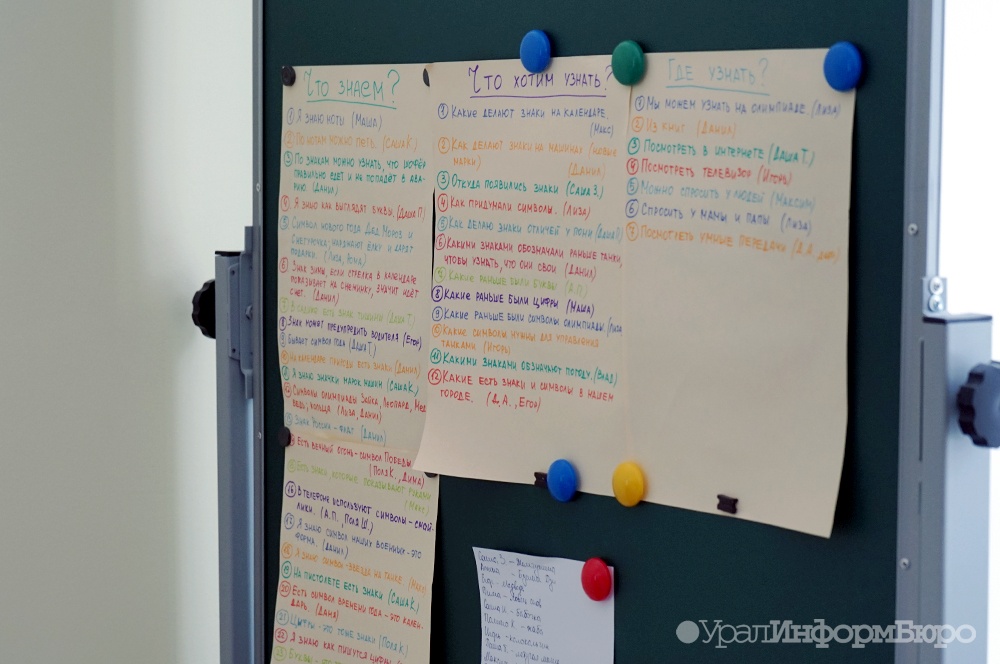 Что знаем?
① Я знаю ноты (Маша)
② По нотам можно петь. (Саша К.)
③ По знакам можно узнать, что шофёр
правильно едет и не попадёт в ава-
рию. (Данил)
④ Я знаю как выглядят буквы. (Даша П)
⑤ Символ нового года Дед Мороз и
Снегурочка: наряжают ёлку и дарят
подарки. (Лиза,
⑥ Знак зимы, если стрелка в календаре
показывает на снежинку, значит идёт
снег. (Данил)
есть знак тишины (Даша Т.)
⑧ Знак может предупредить водителя (Егор)
⑨ Бывает символ года (Даша Т.)
⑩ На календаре природы есть знаки (Данил)
⑪ Я знаю значки марок машин (Саша К.)
Символы олимпиады Зайка, Леопард, Мед
ведь, кольца (Лиза, Данил)
Знак России - флаг (Данил)
Есть вечный огонь - символ Победы
(Поля К., Дима)
Есть знаки, которые показывают руками
(Макс)
⑯ В телефоне используют символы - смай-
лики. (А.П., Поля Ш.)
⑰ Я знаю символ наших военных - это
форма. (Данил)
⑱ Я знаю символ - звезда на танке.
⑲ На пистолете есть знаки (Саша К.)
⑳ Есть символ времени года - это кален-
дарь. (Даня)
㉑ Цифры - это тоже знаки (Поля К.)
㉒ Я знаю как пишутся цифры.
㉓ Буквы - это
Что хотим узнать?
① Какие делают знаки на календаре.
(Макс)
② Как делают знаки на машинах (новые
марки) (Данил)
③ Откуда появились знаки (Саша З.)
④ Как придумали символы. (Лиза)
⑤ Как делаю знаки отличия у пони (Даша П)
⑥ Какими знаками обозначали раньше танки,
чтобы узнать, что они свои (Данил)
⑦ Какие раньше были буквы (Д.П.)
⑧ Какие раньше были цифры (Маша)
⑨ Какие раньше были символы олимпиады (Лиза
⑩ Какие символы нужны для управления
танками (Игорь)
⑪ Какими знаками обозначают погоду. (Влад)
⑫ Какие есть знаки и символы в нашем
городе. (Д.А., Егор)
Где узнать?
① Мы можем узнать на олимпиаде (Лиза)
② Из книг (Данил)
③ Посмотреть в интернете (Даша Т.)
④ Посмотреть телевизор (Игорь)
⑤ Можно спросить у людей (Максим)
⑥ Спросить у мамы и папы (Лиза)
⑦ Посмотреть умные передачи (Д.А.
УралИнформБюро